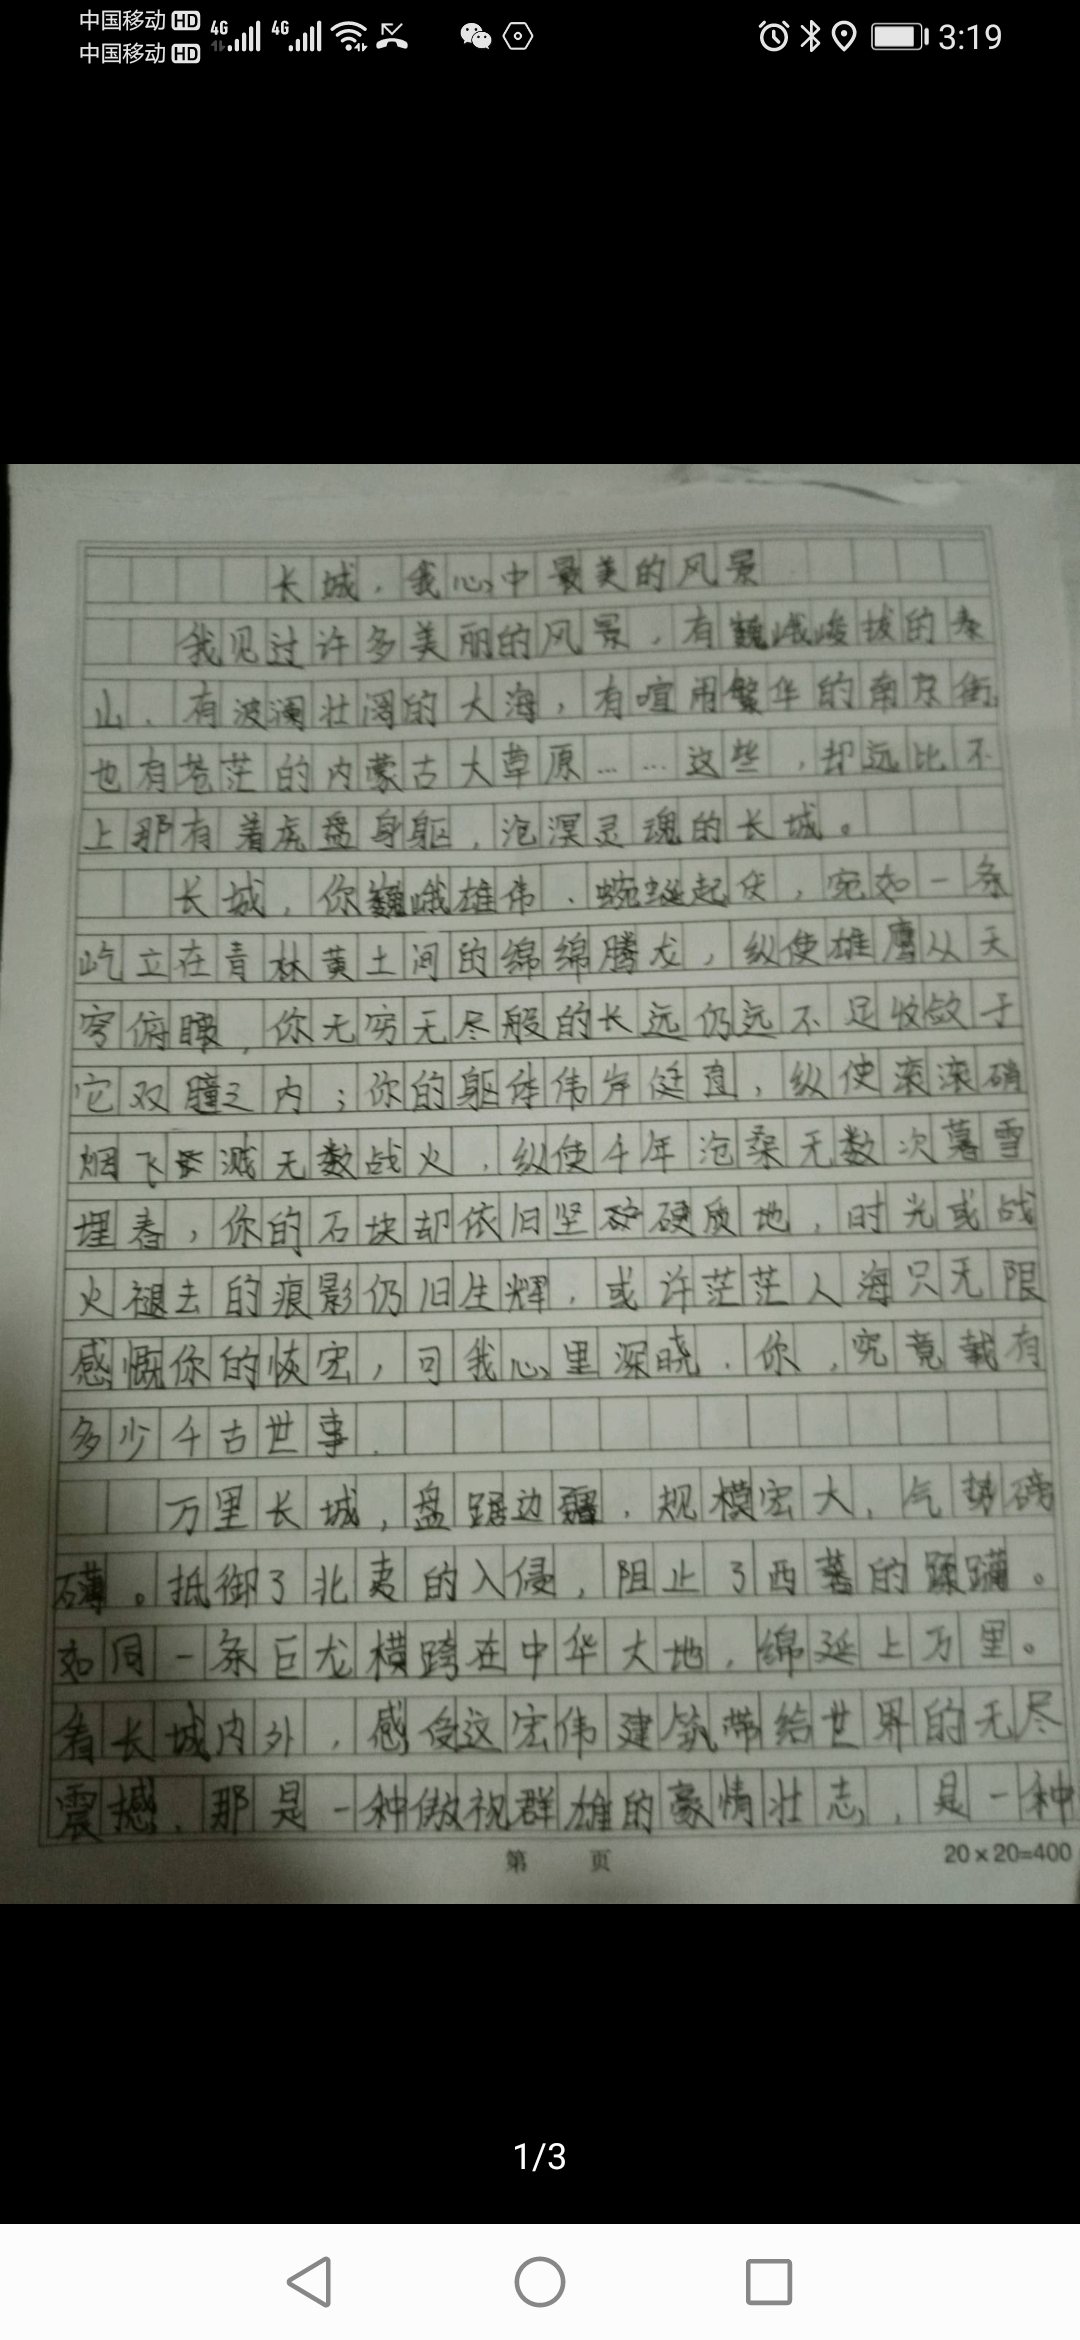 中国移动 HD 4G 4G 3:19
中国移动 HD
长城，我心中最美的风景
我见过许多美丽的风景，有巍峨峻拔的泰
山、有波澜壮阔的大海，有喧闹繁华的南京街，
也有苍茫的内蒙古大草原……这些，却远比不
上那有着虎盘身躯，沧溟灵魂的长城。
长城，你巍峨雄伟、蜿蜒起伏，宛如一条
屹立在青林黄土间的绵绵腾龙，纵使雄鹰从天
穹俯瞰，你无穷无尽般的长远仍远不足收敛于
它双瞳之内；你的躯体伟岸挺直，纵使滚滚硝
烟飞溅无数战火，纵使千年沧桑无数次暮雪
埋春，你的石块却依旧坚硬质地，时光或战
火褪去的痕影仍旧生辉，或许茫茫人海只无限
感慨你的恢宏，可我心里深晓，你，究竟载有
多少千古世事.
万里长城，盘踞边疆，规模宏大，气势磅
礴。抵御了北夷的入侵，阻止了西蕃的蹂躏。
如同一条巨龙横跨在中华大地，绵延上万里。
看长城内外，感受这宏伟建筑带给世界的无尽
震撼，那是一种傲视群雄的豪情壮志，是一种
第 页
20×20=400
1/3